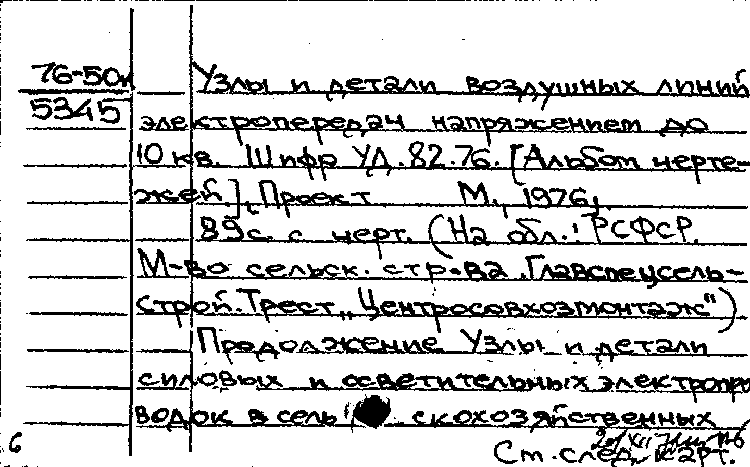 76-50л
5345
Узлы и детали воздушных линий
электропередач напряжением до
10 кв. Шифр УД.82.76. [Альбом черте-
жей.], Проект М., 1976,.
89с. с черт. (На обл.: РСФСР.
М-во сельск. стр-ва. Главспецсель-
строй. Трест „Центросовхозмонтаж")
Продолжение Узлы и детали
силовых и осветительных электропро
водок в сель скохозяйственных
6
См. след. карт.